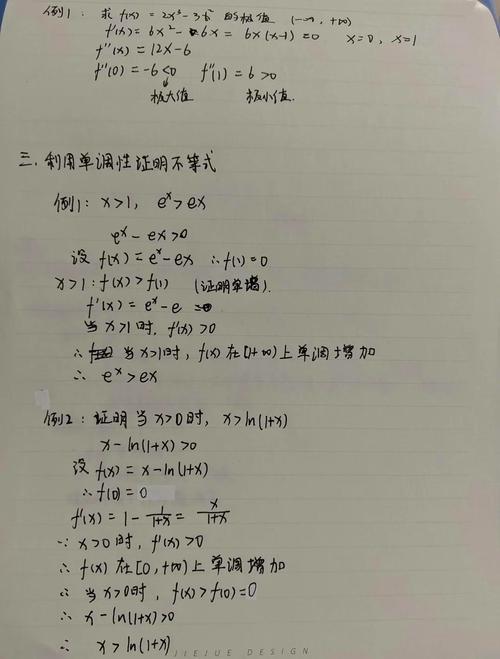 例1: 求 f(x) = 2x³-3x² 的极值 (-∞, +∞)
f'(x) = 6x² - 6x = 6x(x-1) = 0 x=0, x=1
f''(x) = 12x-6
f''(0) = -6<0 f''(1) = 6>0
极大值 极小值.
三. 利用单调性证明不等式
例1: x>1, eˣ>ex
eˣ-ex>0
设 f(x) = eˣ-ex ∴f(1)=0
x>1: f(x)>f(1) (证明单增).
f'(x) = eˣ-e
当x>1时, f'(x)>0
∴ 当x>1时, f(x)在[1+∞)上单调增加
∴ eˣ>ex
例2: 证明当x>0时, x>ln(1+x)
x-ln(1+x)>0
设 f(x) = x-ln(1+x)
∴f(0) = 0
f'(x) = 1 - 1/(1+x) = x/(1+x)
∵ x>0时, f'(x)>0
∴ f(x)在[0,+∞)上单调增加
∴ 当x>0时, f(x)>f(0)=0
∴ x-ln(1+x)>0
∴ x>ln(1+x)
JIEJUE DESIGN